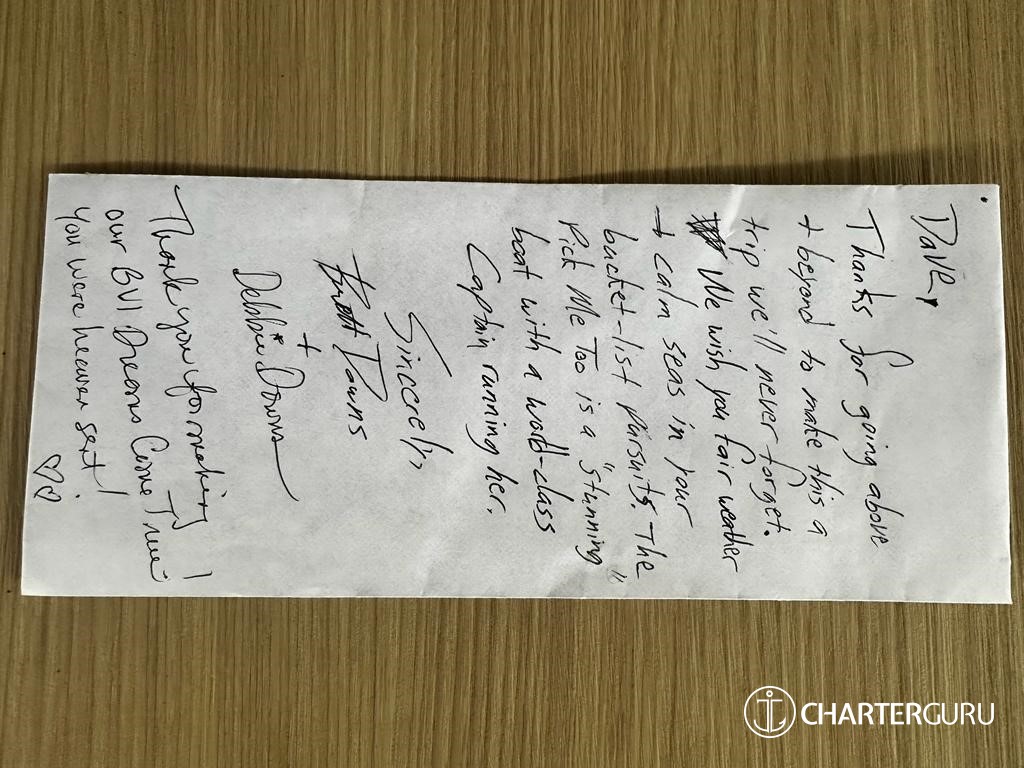 Dave,
Thanks for going above
+ beyond to make this a
trip we'll never forget.
We wish you fair weather
+ calm seas in your
bucket-list pursuits. The
Pick Me Too is a "stunning"
boat with a world-class
Captain running her.
Sincerely,
Brett Downs
+
Debbie Downs
Thank you for making
our BVI Dreams Come True!
You were heaven sent!
CHARTERGURU